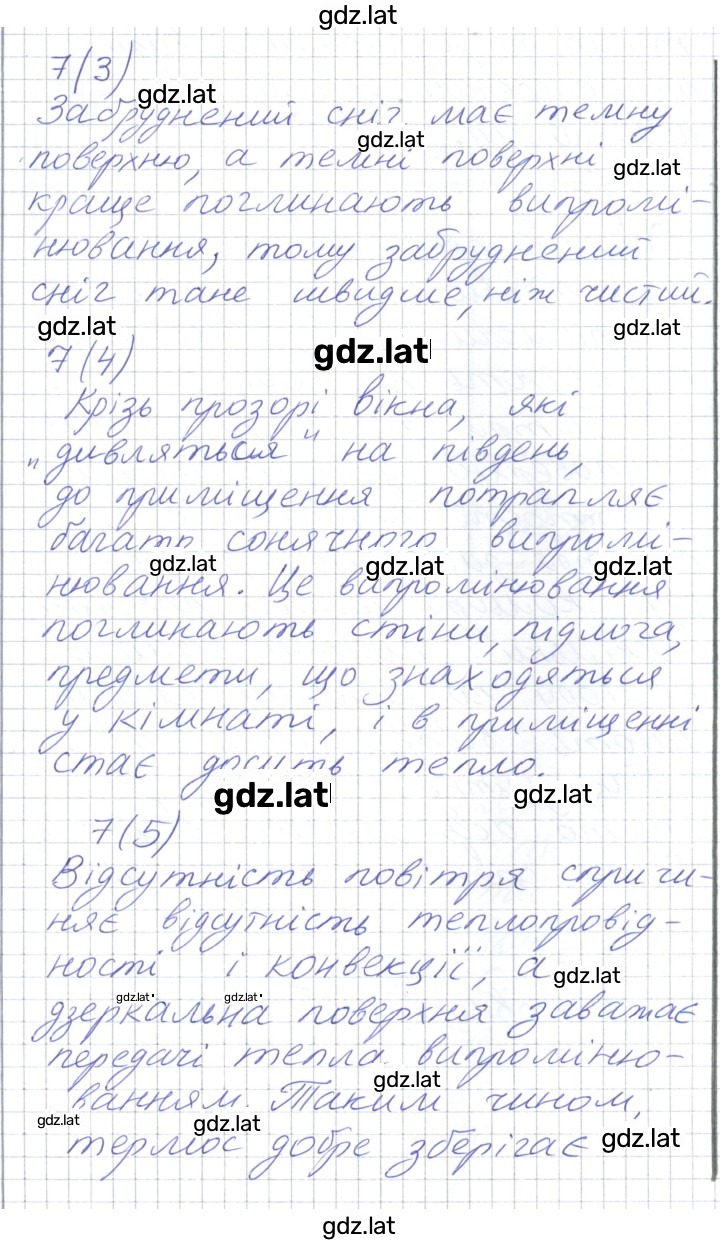 gdz.lat
7(3)
gdz.lat
Забруднений сніг має темну
gdz.lat
поверхню, а темні поверхні
gdz.lat
краще поглинають випромі-
нювання, тому забруднений
сніг тане швидше, ніж чистий.
gdz.lat
gdz.lat
7(4)
gdz.lat
Крізь прозорі вікна, які
"дивляться" на південь,
до приміщення потрапляє
багато сонячного випромі-
gdz.lat
gdz.lat
gdz.lat
нювання. Це випромінювання
поглинають стіни, підлога,
предмети, що знаходяться
у кімнаті, і в приміщенні
стає досить тепло.
gdz.lat
gdz.lat
7(5)
Відсутність повітря спричи-
няє відсутність теплопровід-
ності і конвекції, а
gdz.lat
gdz.lat
gdz.lat
дзеркальна поверхня заважає
передачі тепла випроміню-
gdz.lat
ванням. Таким чином,
gdz.lat
gdz.lat
термос добре зберігає
gdz.lat
gdz.lat